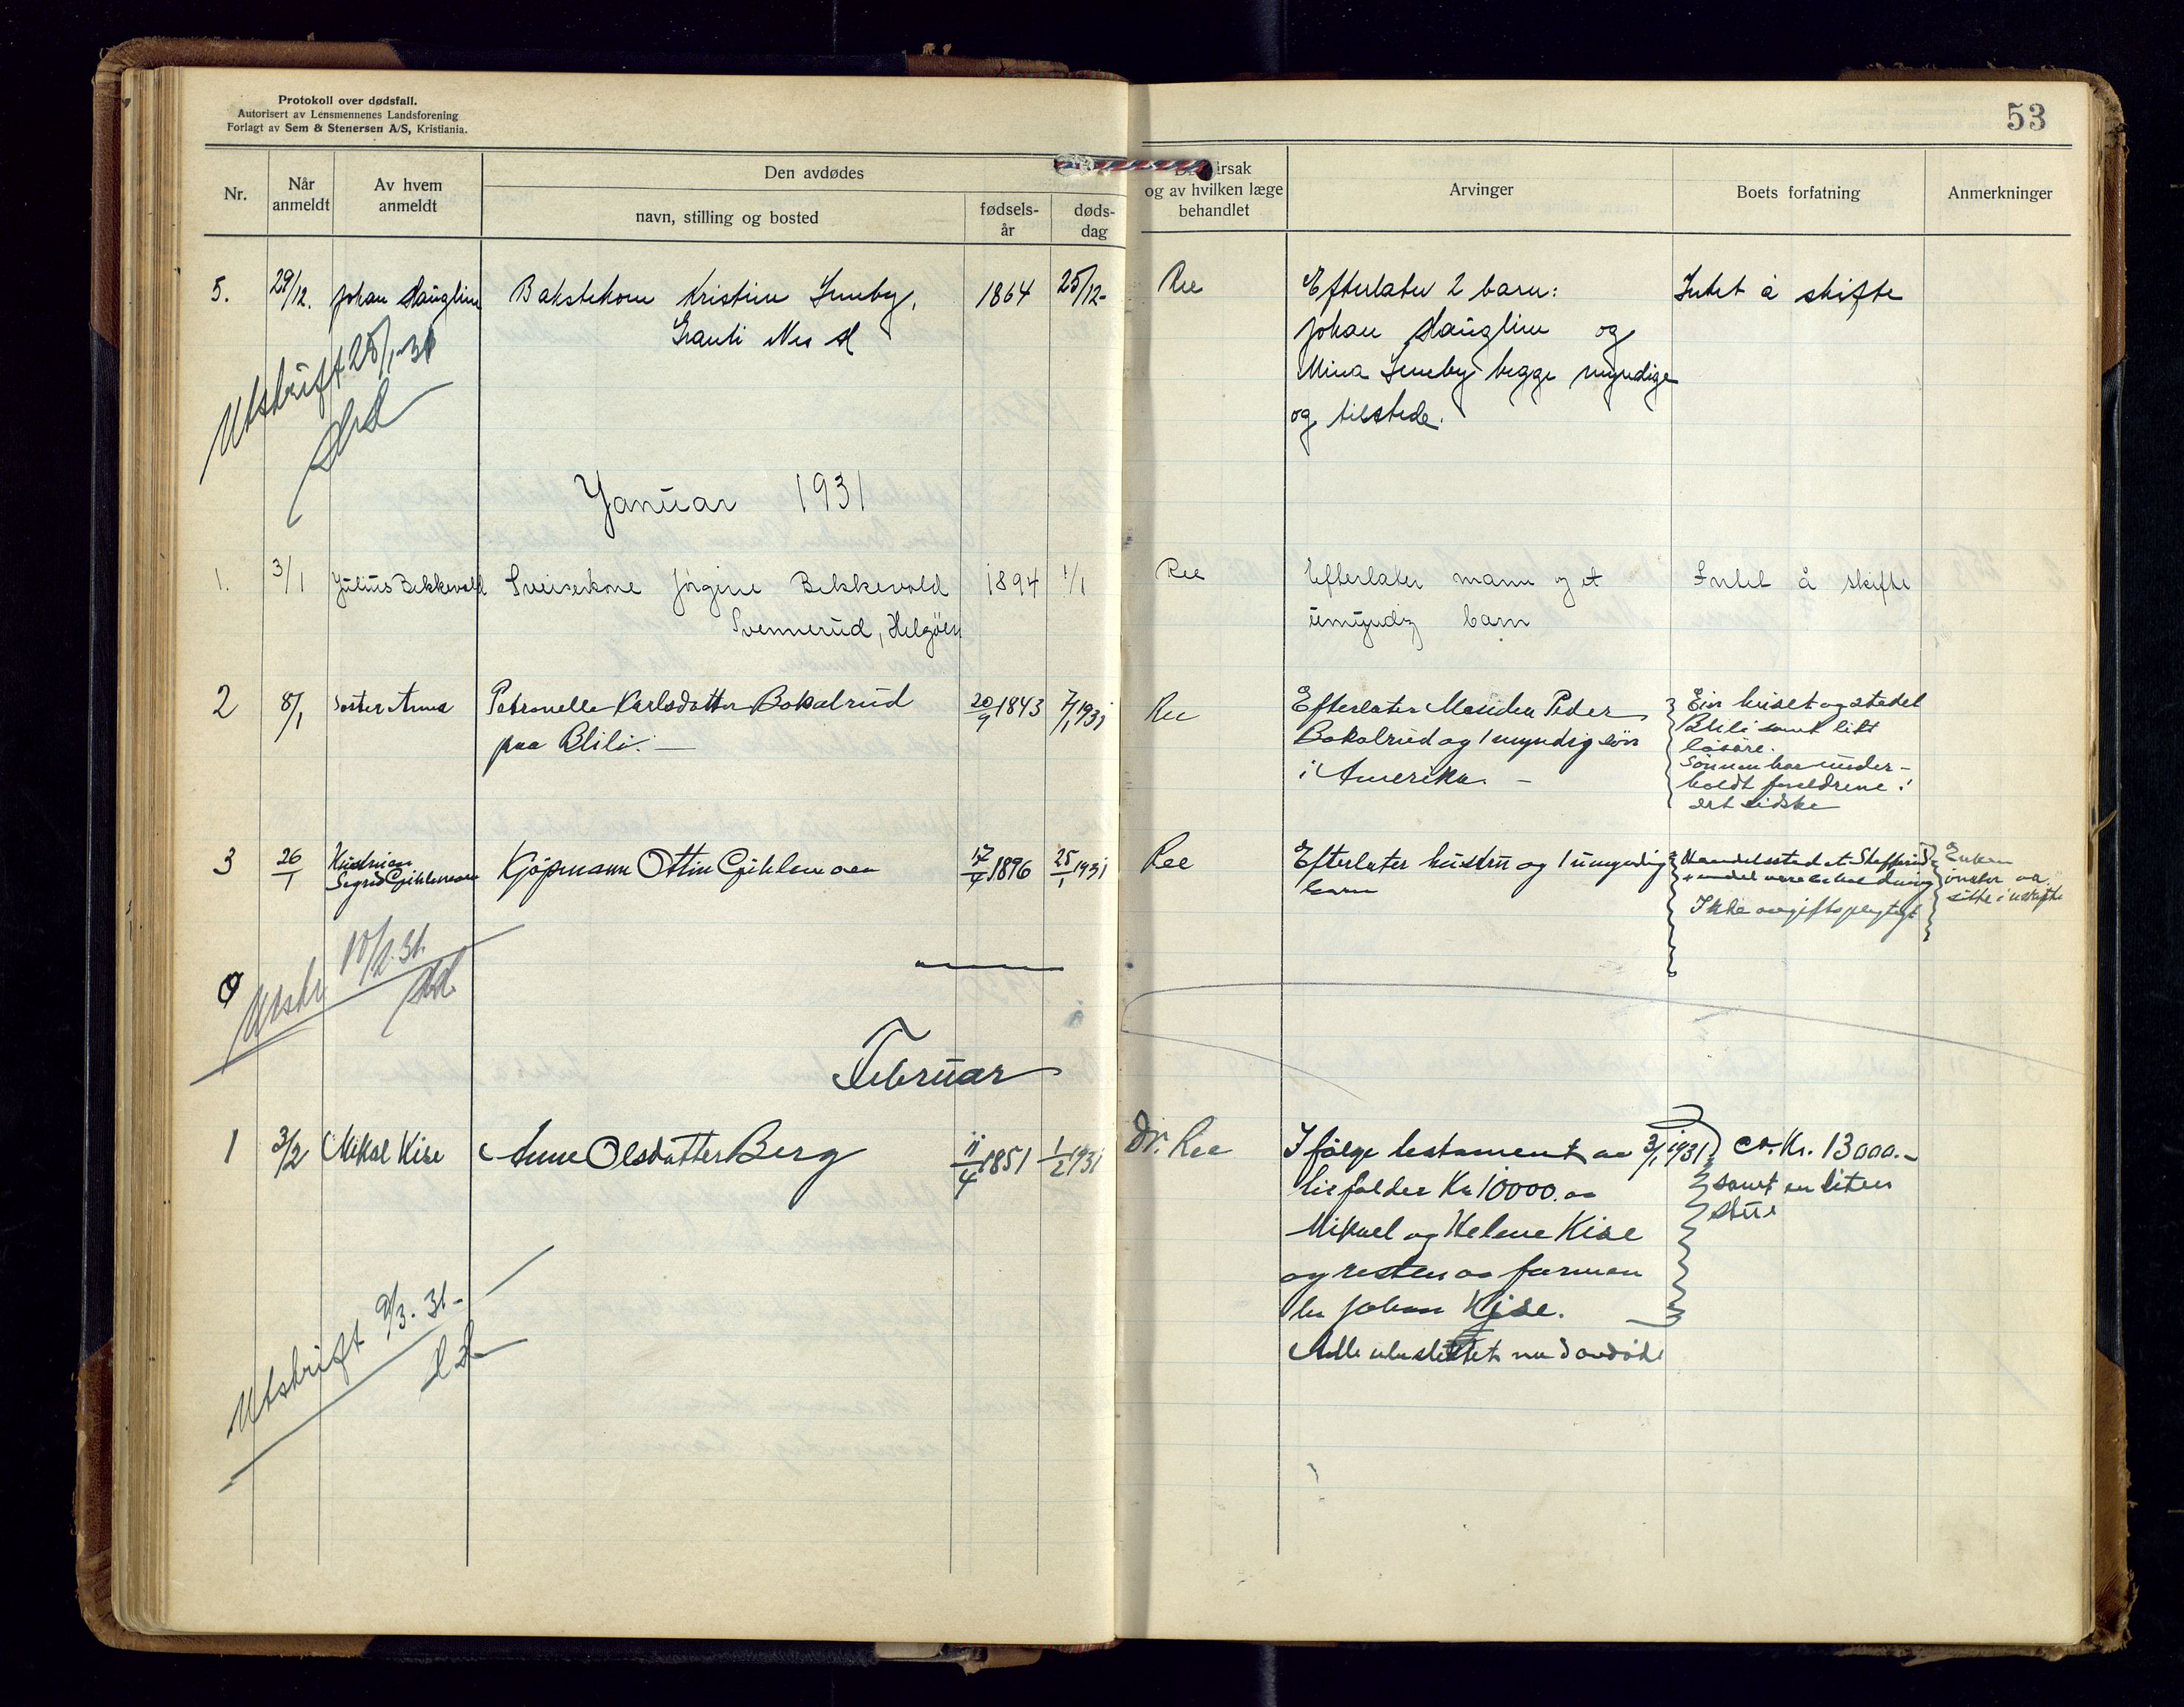 Protokoll over dødsfall.
Autorisert av Lensmennenes Landsforening
Forlagt av Sem & Stenersen A/S, Kristiania.
53
Nr.
Når anmeldt
Av hvem anmeldt
Den avdødes
navn, stilling og bosted
fødsels-år
døds-dag
årsak
og av hvilken læge
behandlet
Arvinger
Boets forfatning
Anmerkninger
5. 29/12. Johan Hauglien Bakstekone Kristine 1864 25/12- Ree Efterlater 2 barn: Intet å skifte
Nes H Johan Hauglien og
Mina begge myndige
og tilstede.
Utskrift 25/1-31
Januar 1931
1. 3/1 Julius Bekkevold Sveiserkone Jörgine Bekkevold 1894 1/1 Ree Efterlater mann og et Intet å skifte
Svennerud, Helgöen umyndig barn
2 8/1 Söster Anna Petronelle Karlsdatter Bakalrud 20/9 1843 7/1 1931 Ree Efterlater Manden Peder Eier huset og stedet
paa Blili. — Bakalrud og 1 myndig sön Blili samt litt
i Amerika. — lösöre.
Sönnen har under-
holdt foreldrene i
det sidste
3 26/1 Hustruen Kjöpmann Ottin Gjihlemoen 17/4 1896 25/1 1931 Ree Efterlater hustru og 1 umyndig Handelssted Enken
Sigrid Gjihlemoen barn önsker aa
Ikke avgiftspligtigt sitte i uskifte
Utskr 10/2.31.
Februar
1 3/2 Mikal Kise Anne Olsdatter Berg 11/4 1851 1/2 1931 Dr. Ree Ifölge testament av 3/1 1931 ca. Kr. 13000.-
tilfalder Kr 10000. samt en liten
Mikael og Helene Kise stue
og resten av formuen
Johan Kise.
Alle ubeslektet med avdöde
Utskrift 9/3. 31-